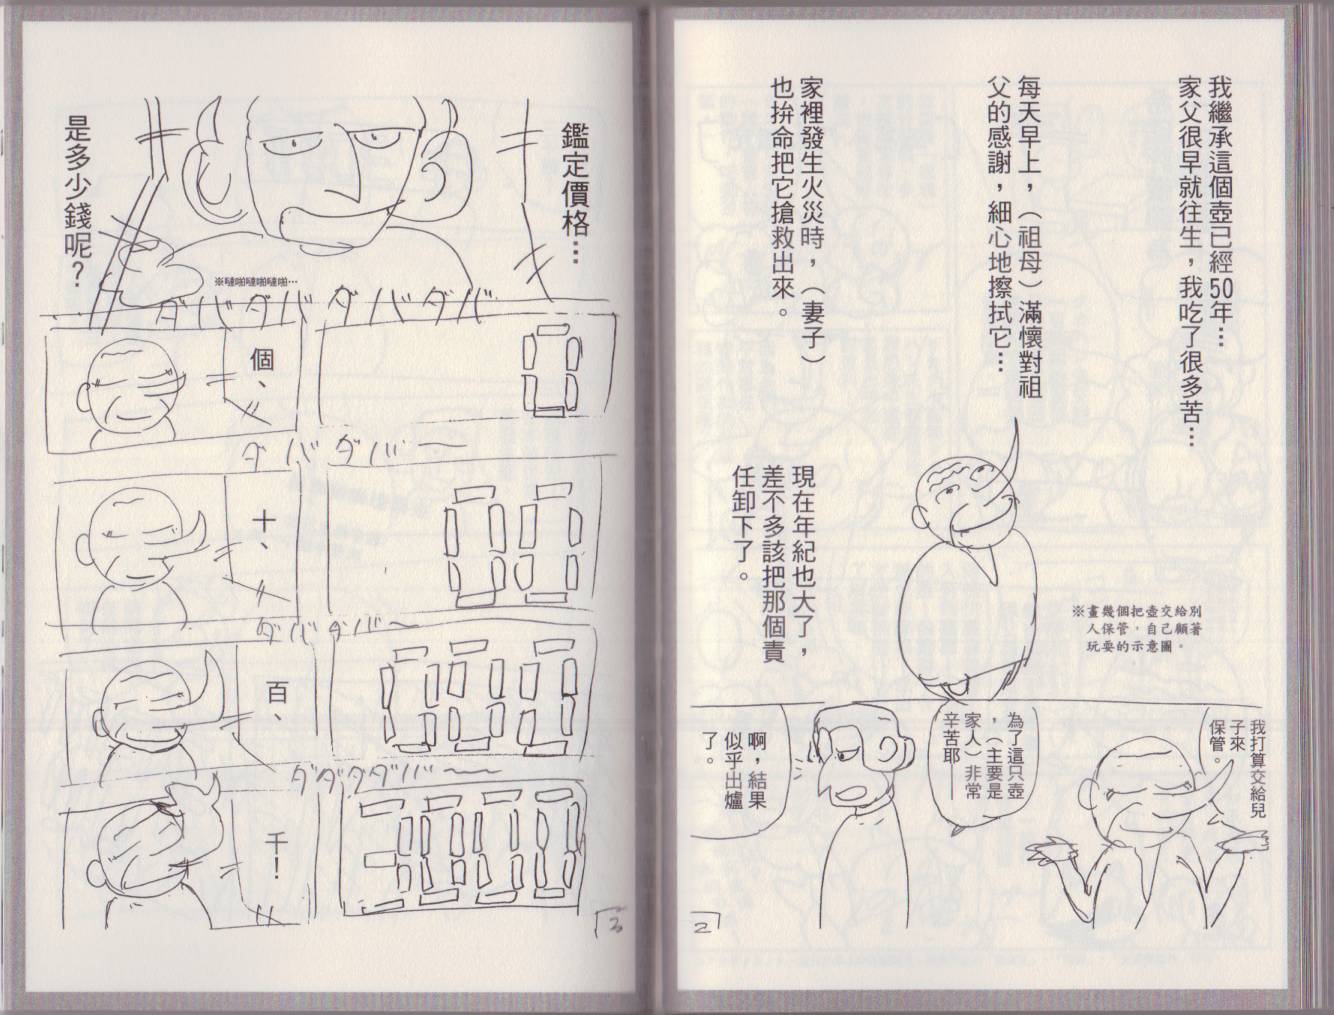 我繼承這個壺已經50年…
家父很早就往生，我吃了很多苦…
每天早上，（祖母）滿懷對祖
父的感謝，細心地擦拭它…
家裡發生火災時，（妻子）
也拚命把它搶救出來。
現在年紀也大了，
差不多該把那個責
任卸下了。
※畫幾個把壺交給別
人保管，自己顧著
玩耍的示意圖。
我打算交給兒
子來
保管。
為了這只壺
，（主要是
家人）非常
辛苦耶——
啊，結果
似乎出爐
了。
2
鑑定價格…
是多少錢呢？
※噠啪噠啪噠啪…
ダバダバダバダバ
個、
0
ダバダバ～
十、
00
ダバダバ～
百、
000
ダダダダバ～
千！
3000
3